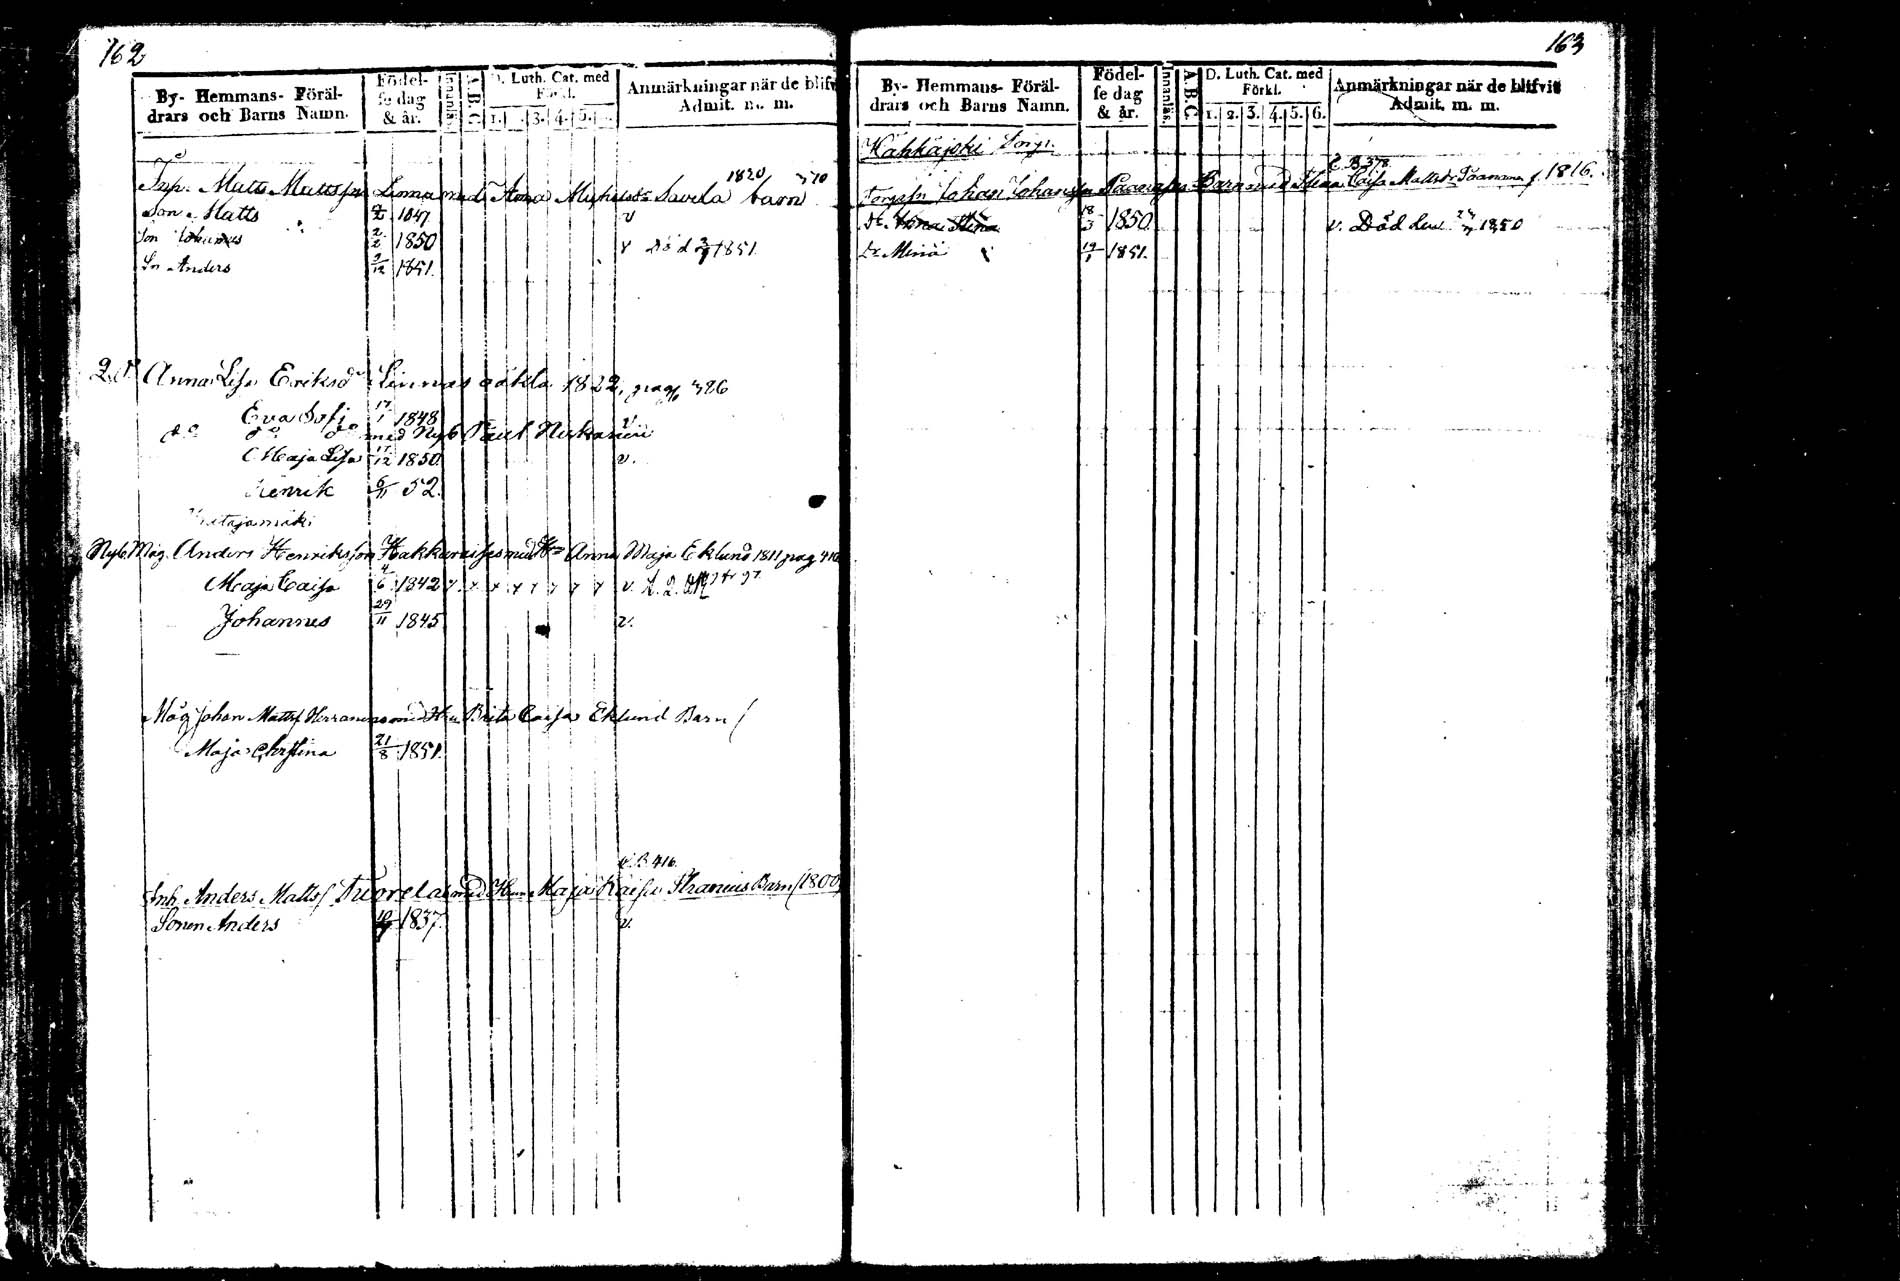 162
By- Hemmans- Föräl-
drars och Barns Namn.
Födel-
se dag
& år.
Innanläs.
A.B.C.
D. Luth. Cat. med
Förkl.
1. 3. 4. 5.
Anmärkningar när de blifvit
Admit. m. m.
1820
Inh. Matts Mattsson Linna med Anna Savela barn
Son Matts 1847 v
Son Johannes 2/2 1850 v Död 1851
Sn Anders 9/12 1851.
Anna Lisa Eriksdr Linnas oäkta 1822, pag 386
Eva Sofia 17/1 1848 v
do do do med Nyb Paul Niskanen
Maja Lisa 17/12 1850. v.
Henrik 6/11 52.
Katajamäki
Nyb. Måg. Anders Henriksson Hakkarainen med Hu Anna Maja Eklund 1811 pag 410
Maja Caisa 4/6 1842 v.
Johannes 29/11 1845 v.
Måg Johan Mattss Herranen med Hu Brita Caisa Eklund Barn
Maja Christina 21/8 1851.
C.B. 416.
Inh. Anders Matts Tuorelas med Hun Maja Kaisa Barn (1800)
Sonen Anders 1837. v.
163
By- Hemmans- Föräl-
drars och Barns Namn.
Födel-
se dag
& år.
Innanläs.
A.B.C.
D. Luth. Cat. med
Förkl.
1. 2. 3. 4. 5. 6.
Anmärkningar när de blifvit
Admit. m. m.
Torp.
C.B. 378
Johan Johansson Paananens Barn med Stina Caisa Mattsdr Paananen f. 1816.
Dr Anna Stina 18/3 1850 v. Död 1850
Dr Mina 19/1 1851.